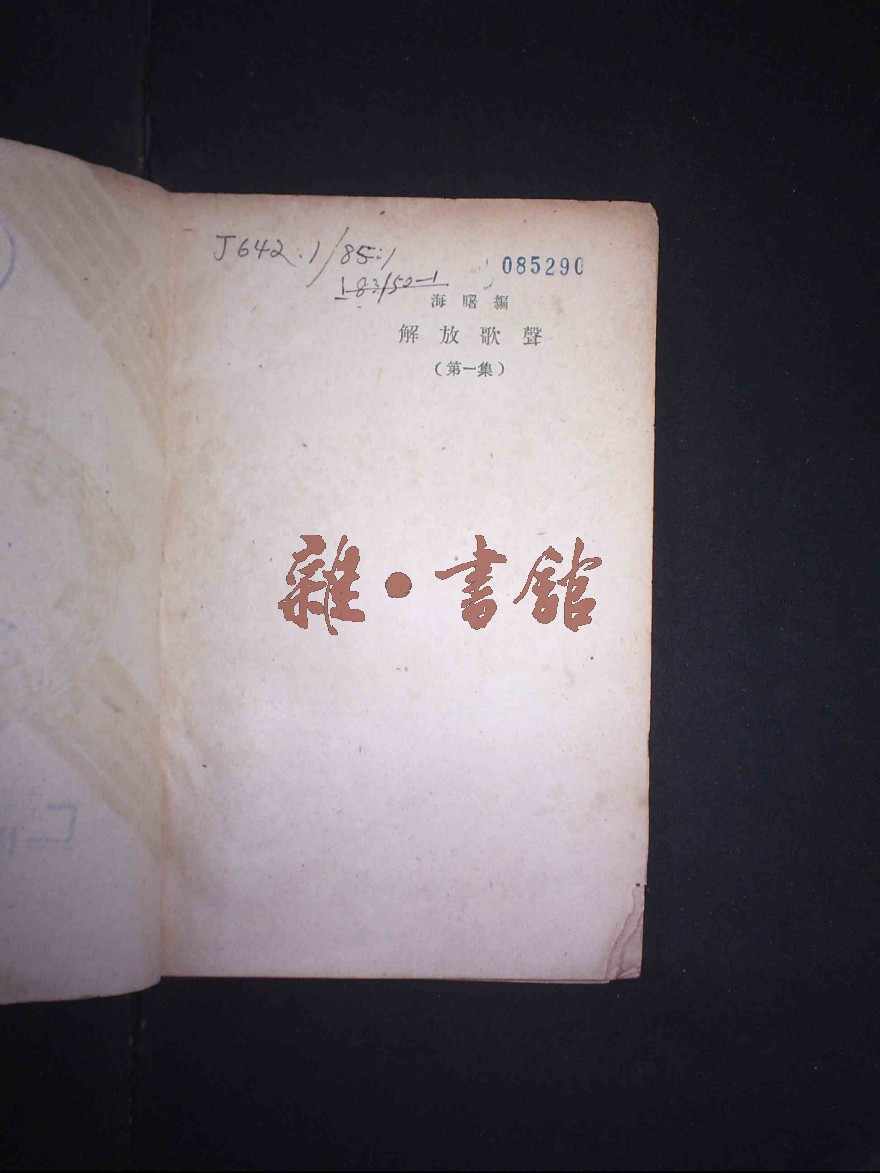 J642.1/85:1
183/50-1
085290
海曙編
解放歌聲
(第一集)
雜·書館